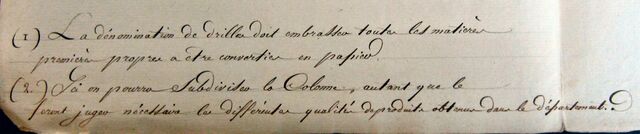 (1) La dénomination de drilles doit embrasser toutes les matières
premières propres a être converties en papier.
(2.) Ici on pourra Subdiviser la Colonne, autant que le
feront juger nécessaire les différentes qualités de produits obtenus dans le département.